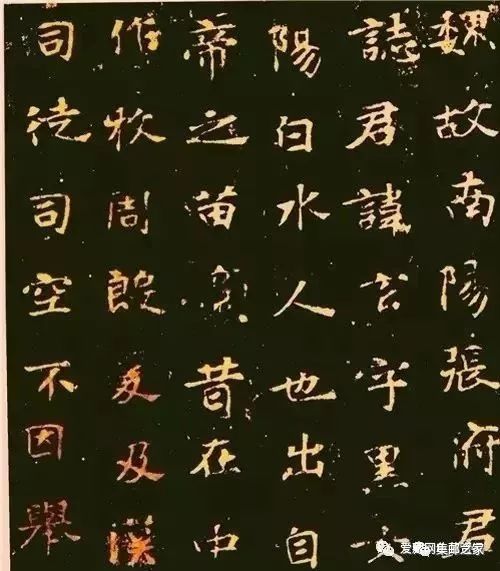 魏故南陽張府君
誌君諱玄字黑女
陽白水人也出自
帝之苗裔昔在中
作牧周殷爰及漢
司徒司空不因舉
爱藏网集邮之家